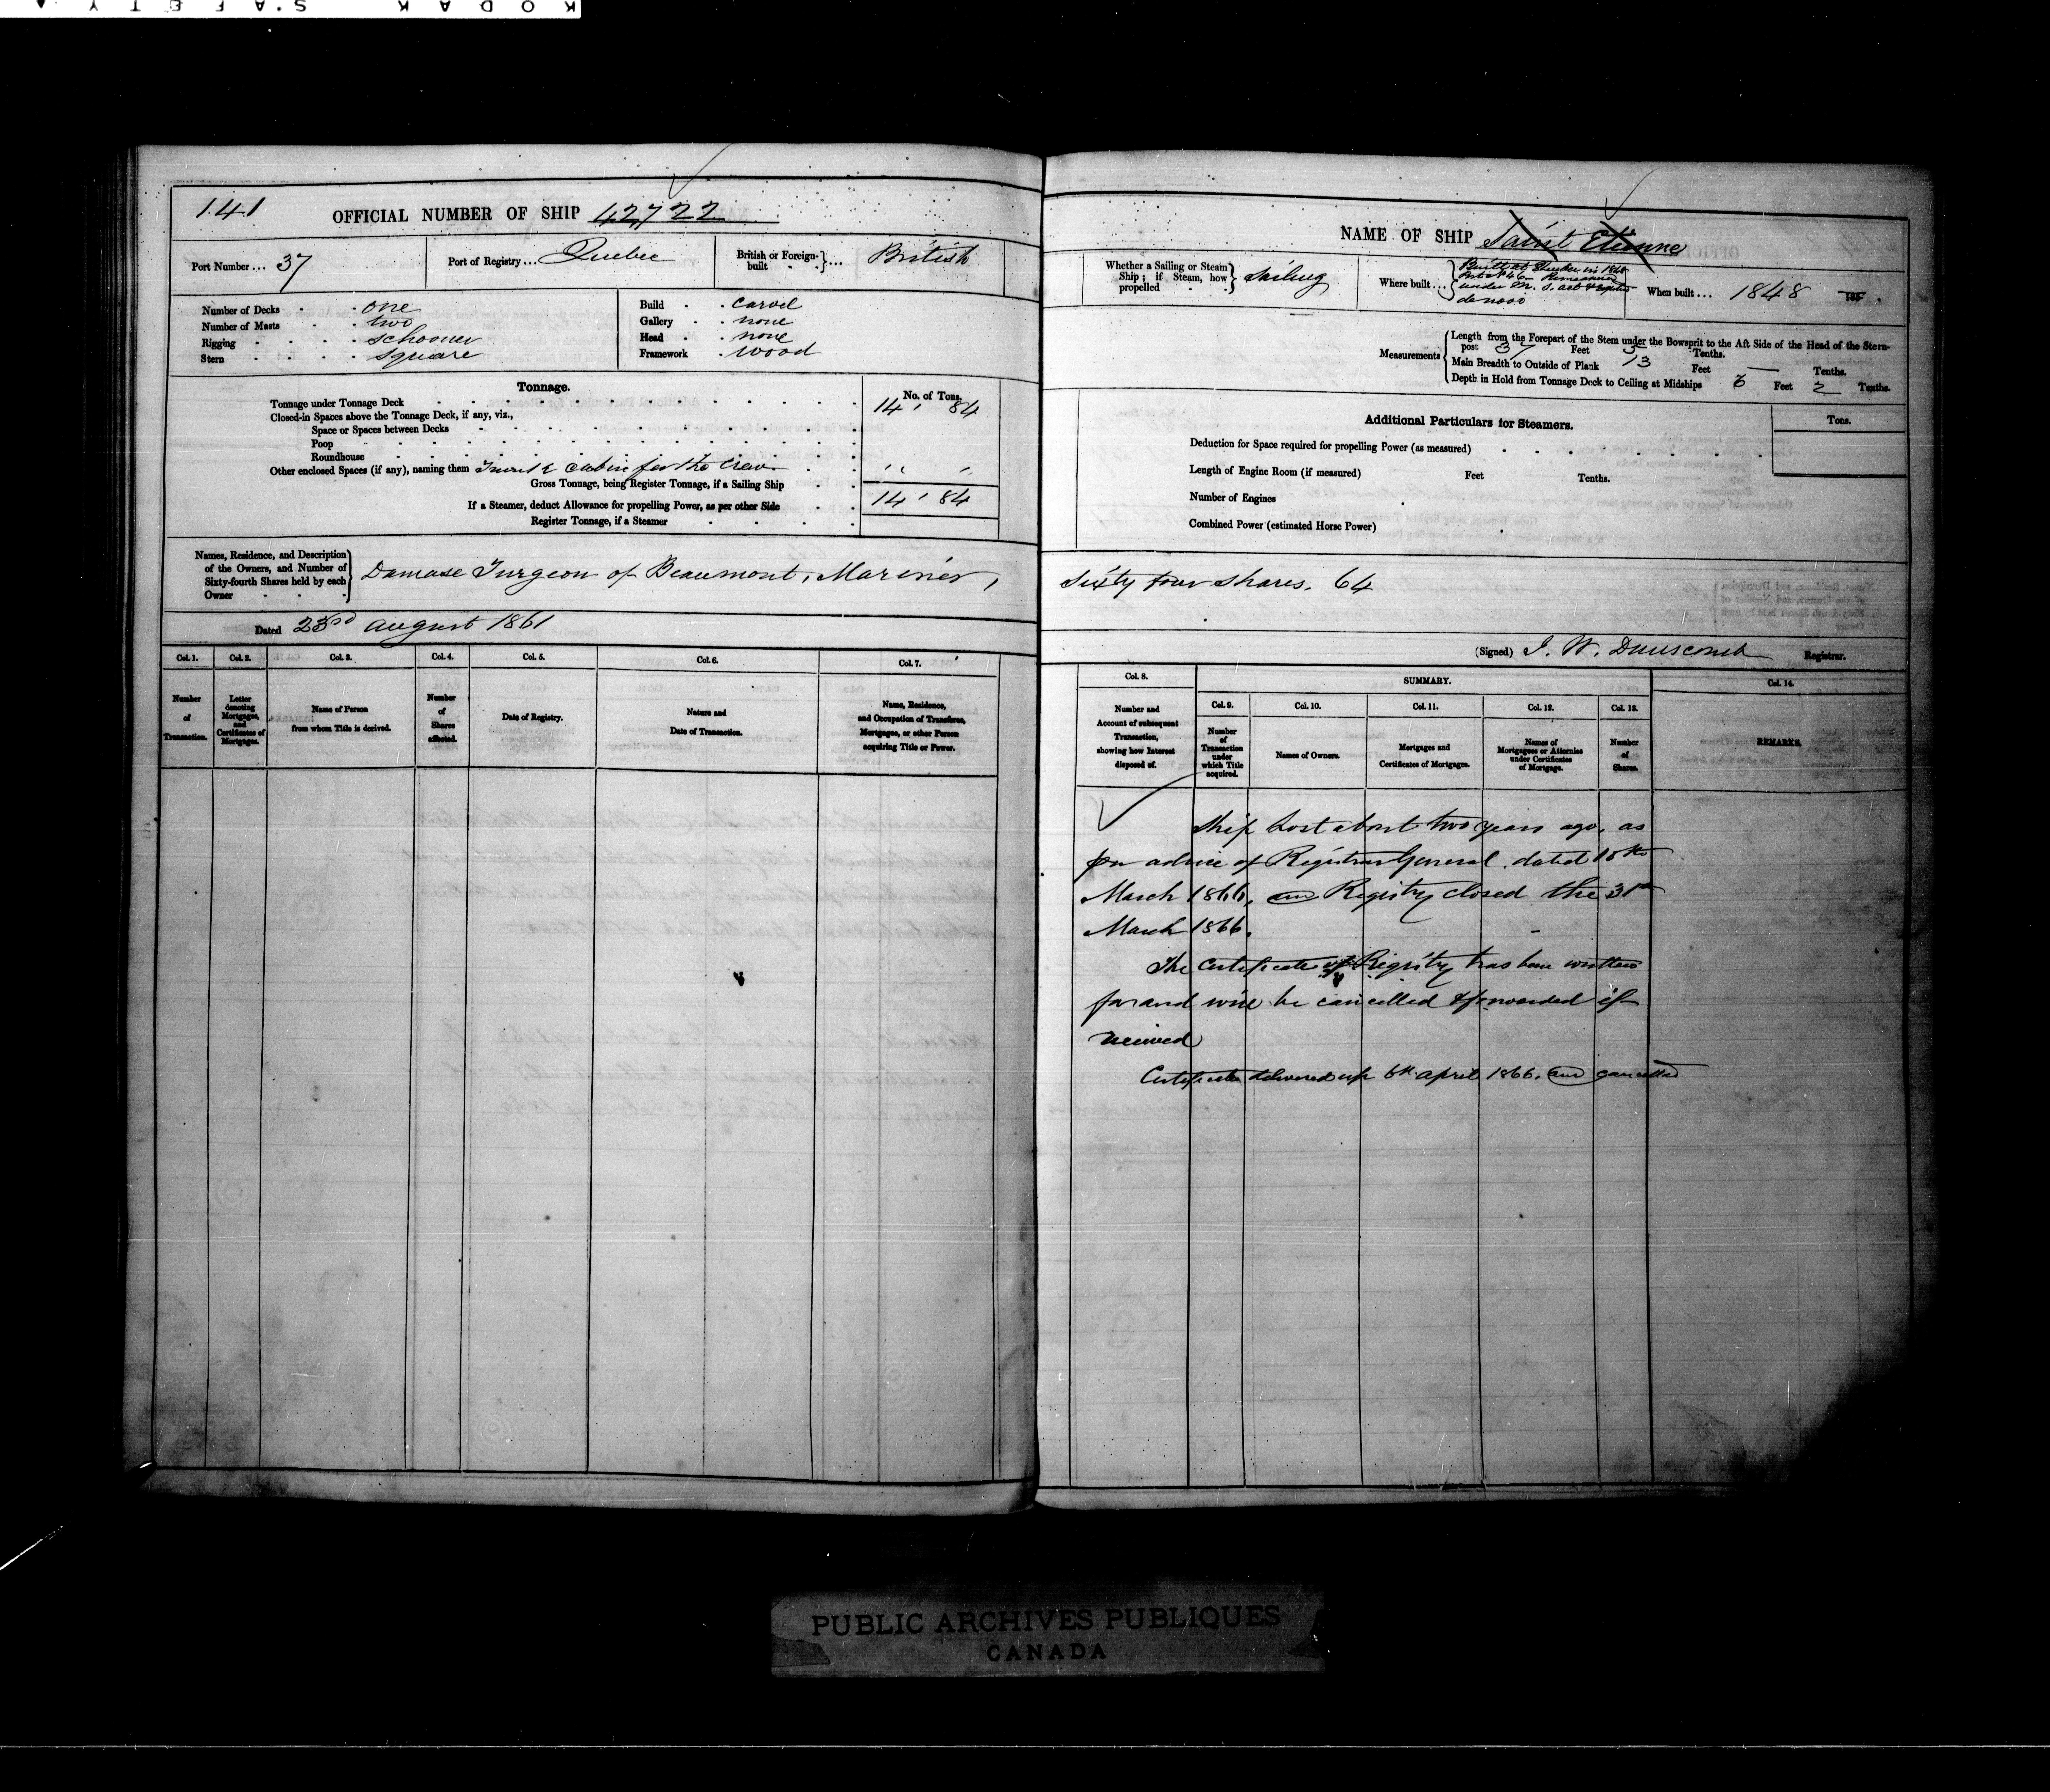 KODAK SAFETY
141
OFFICIAL NUMBER OF SHIP 42722
Port Number... 37
Port of Registry... Quebec
British or Foreign-built }... British
Number of Decks . one
Number of Masts . two
Rigging . schooner
Stern . square
Build . carvel
Gallery . none
Head . none
Framework . wood
Tonnage.
No. of Tons.
Tonnage under Tonnage Deck 14 , 84
Closed-in Spaces above the Tonnage Deck, if any, viz.,
Space or Spaces between Decks
Poop
Roundhouse
Other enclosed Spaces (if any), naming them cabin for the Crew
Gross Tonnage, being Register Tonnage, if a Sailing Ship 14 , 84
If a Steamer, deduct Allowance for propelling Power, as per other Side
Register Tonnage, if a Steamer
Names, Residence, and Description
of the Owners, and Number of
Sixty-fourth Shares held by each
Owner
Damase Turgeon of Beaumont, Mariner,
Dated 23rd august 1861
Col. 1.
Col. 2.
Col. 3.
Col. 4.
Col. 5.
Col. 6.
Col. 7.
Number of Transaction.
Letter denoting Mortgages, and Certificates of Mortgages.
Name of Person from whom Title is derived.
Number of Shares affected.
Date of Registry.
Nature and Date of Transaction.
Name, Residence, and Occupation of Transferee, Mortgagee, or other Person acquiring Title or Power.
NAME OF SHIP Saint Etienne
Whether a Sailing or Steam
Ship; if Steam, how
propelled
Sailing
Where built...
Built at Quebec in 1848
under M. S. act &
de novo
When built... 1848 185 .
Measurements
Length from the Forepart of the Stem under the Bowsprit to the Aft Side of the Head of the Stern-
post 37 Feet 5 Tenths.
Main Breadth to Outside of Plank 13 Feet — Tenths.
Depth in Hold from Tonnage Deck to Ceiling at Midships 6 Feet 2 Tenths.
Additional Particulars for Steamers.
Tons.
Deduction for Space required for propelling Power (as measured)
Length of Engine Room (if measured) Feet Tenths.
Number of Engines
Combined Power (estimated Horse Power)
Sixty four shares. 64
(Signed) J. W. Dunscomb Registrar.
Col. 8.
SUMMARY.
Col. 14.
Col. 9.
Col. 10.
Col. 11.
Col. 12.
Col. 13.
Number and Account of subsequent Transaction, showing how Interest disposed of.
Number of Transaction under which Title acquired.
Names of Owners.
Mortgages and Certificates of Mortgages.
Names of Mortgagees or Attornies under Certificates of Mortgage.
Number of Shares.
REMARKS.
Ship Lost about two years ago, as
per advice of Registrar General dated
March 1866, and Registry closed the 31st
March 1866.
The Certificate of Registry has been written
for and will be cancelled & forwarded if
received
Certificate delivered up 6th april 1866. and cancelled
PUBLIC ARCHIVES PUBLIQUES
CANADA